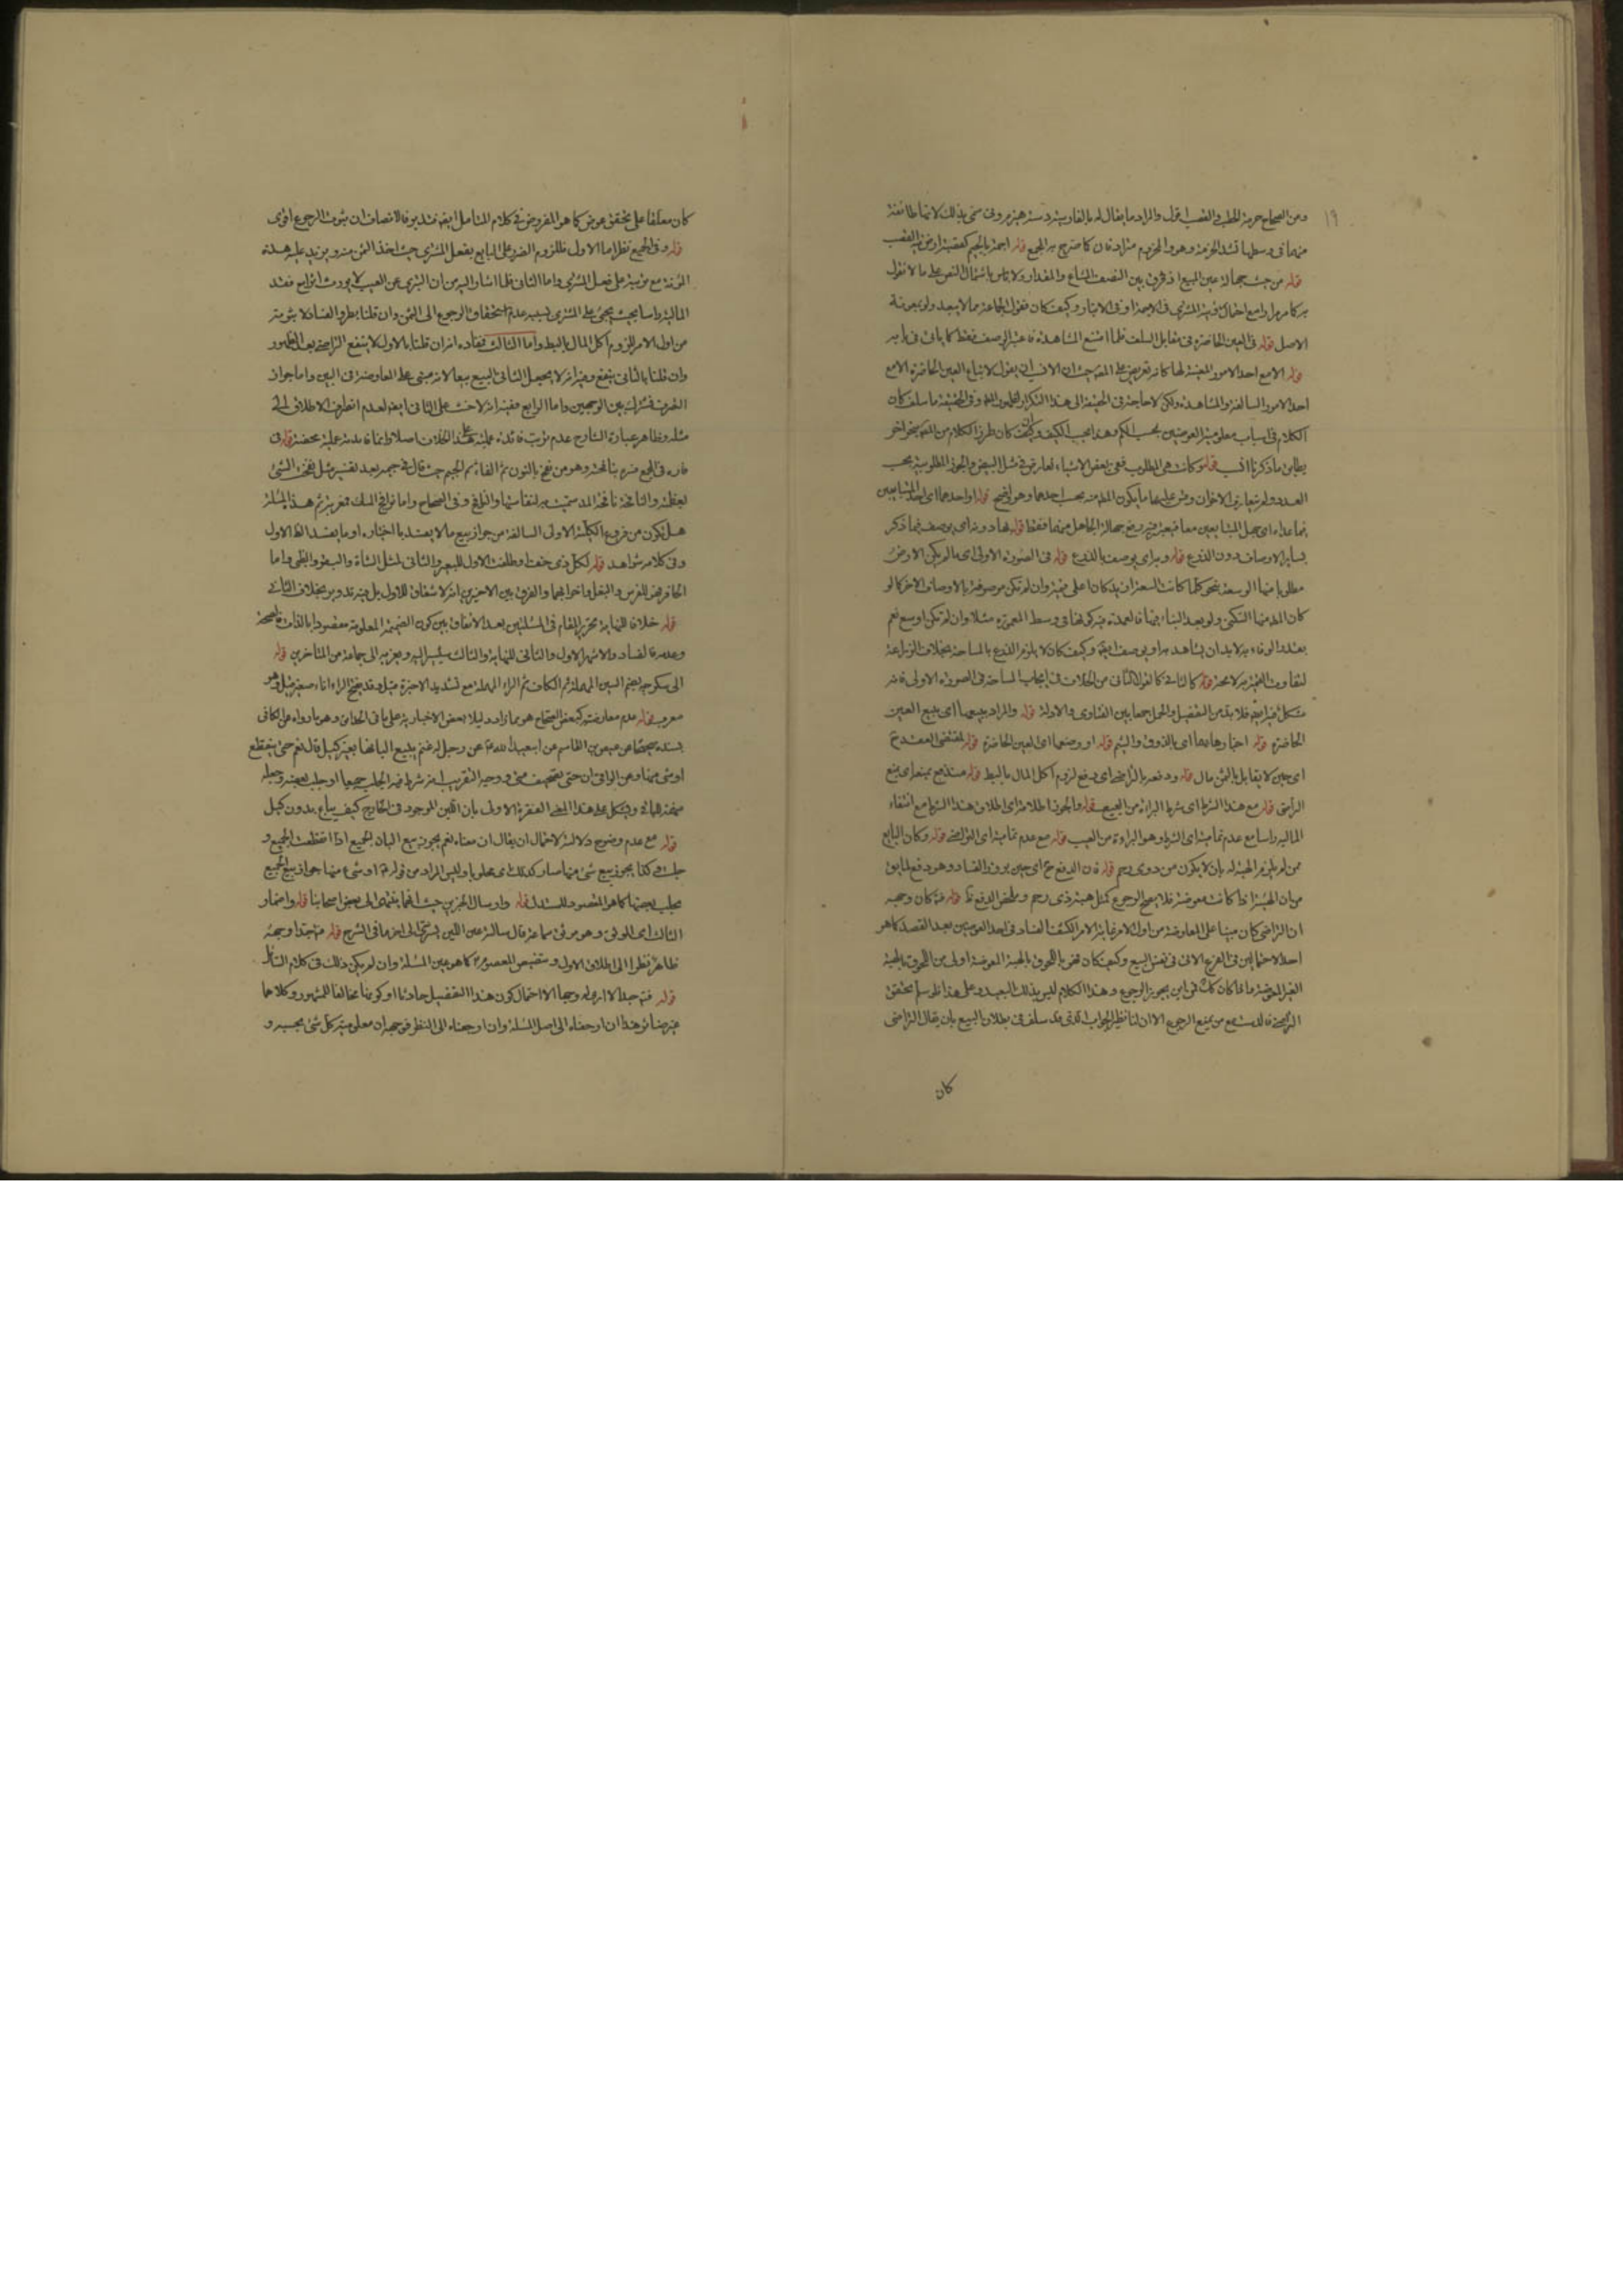 ١٩
ومن الصحاح حزمة الحطب والقصب اقول والمراد ما يقال له بالفارسية دسته
منهما فى وسطها تشد الحزمة وهو والحزوم مترادفان كما صرح به المجمع قوله اجمة بالجيم كقصبة ارض القصب
قوله من حيث جهالة عين المبيع اذ فرق بين النصف المشاع والمقدار ولا باس باشتمال النص على ما لا نقول
به كما مر مرارا مع احتمال المشترى فى الاجمة او فى الانبار وكيف كان فقول الجماعة مما لا يبعد ولو بمعونة
الاصل قوله فى العين الحاضرة فى مقابل السلف فلما امتنع المشاهدة فاعتبر الوصف فقط كما ياتى فى بابه
قوله الامع احد الامور المعينة لها كانه تعريض على حيث ان الانسب ان يقول لا تباع العين الحاضرة الامع
احد الامور السالفة والمشاهدة ولكن لا حاجة فى الحقيقة الى هذا التكرار وفى الحقيقة ما سلف كان
الكلام فى اسباب معلومية العوضين بحسب الكم وهذا بحسب الكيف وكيف كان طرز الكلام من بنحو اخر
يطابق ما ذكرنا انسب قوله كانت هى المطلوب ففى بعض الاشياء تعارض فى مثل البيض والجوز المطلوبية بحسب
العدد ولم يتعارف الاخوان وقس عليهما ما يكون بحسب احدهما وهو واضح قوله او احدهما اى احد المتبايعين
فيما عداه اى جهل المتبايعين معا رفع جهالة الجاهل منهما فقط قوله بهاد ونه اى يوصف بما ذكر
بساير الاوصاف دون الذرع قوله وبه اى يوصف بالذرع قوله فى الصورة الاولى اى ما لم يكن الارض
مطلوبا منها الوسعة بنحو كلما كانت السعة ازيد كان اعلى قيمة وان لم تكن موصوفة بالاوصاف الاخر كما لو
كان منها السكنى ولو بعد البناء فيها فالعمدة كونها فى وسط المعمورة مثلا وان لم تكن اوسع نعم
بعد الوفاء به لا بد ان يشاهد به او يوصف ايضا وكيف كان لا يلزم الذرع بالمساحة بخلاف الزراعة
لتفاوت القيمة به لا محة قوله كالثانى كالقول الثانى من الخلاف فى ايجاب المساحة فى الصورة الاولى فانه
مشكل ايضا فلا بد من التفصيل والحمل جمعا بين الفتاوى والادلة قوله والمراد ببيعها اى ببيع العين
الحاضرة قوله اختبارها بها اى بالذوق والشم قوله او وصفها اى العين الحاضرة قوله لمقتضى العقد
اى حين لا يقابل بالثمن مال قوله ودفعه بالتراضى اى دفع لزوم اكل المال بالباطل قوله
الراضى قوله مع هذا الشرط اى شرط البرائة من العيب قوله والجواز اطلاقه اى اطلاق هذا الشرط مع انتفاء
المالية راسا مع عدم تمامية اى الشرط وهو البراءة من العيب قوله مع عدم تمامية اى التراضى قوله وكان البايع
ممن لم يلزم الهبة له بان لا يكون من ذوى رحم قوله فان الدفع ح اى حين بروز الفساد وهو دفع لما بق
من ان الهبة اذا كانت معوضة فلا يصح الرجوع كمثل هبة ذى رحم قوله كان وجهه
ان التراضى كان مبنيا على المعاوضة من اول الامر غاية الامر انكشف الفساد فى احد العوضين بعد القصد كما هو
احد الاحتمالين فى الفرع الاتى فى نفس البيع وكيف كان فهى باللحوق بالهبة المعوضة اولى من اللحوق بالهبة
الغير المعوضة وهذا الكلام ليس بذلك البعيد وعلى هذا فلو سلم تحقق
مع من يمنع الرجوع الا ان لنا نظير الجواب الذى قد سلف فى بطلان البيع بان يقال التراضى
كان
كان معلقا على تحقق عوض كما هو المفروض فى كلام المتامل ايضا فتدبر فالانصاف ان ثبوت الرجوع اقوى
قوله وفى الجميع نظر اما الاول فللزوم الضرر على البايع بفعل المشترى حيث اخذ الثمن منه ويزيد عليه هذه
المؤنة مع ترتبه على فعل المشترى واما الثانى فلما اشار اليه من ان التبرى عن العيب لا يورث ازيد مع فقد
المالية راسا بحيث يجئ على المشترى بسببه عدم استحقاق الرجوع الى الثمن وان قلنا بطرو الفساد لا ثبوته
من اول الامر للزوم اكل المال بالباطل واما الثالث فمفاده انه ان قلنا بالاول لا ينفع التراضى بعد الظهور
وان قلنا بالثانى ينفع وفيه انه لا يجعل الثانى البيع بيعا لانه مبنى على المعاوضة فى البين واما جواز
التصرف فمشترك بين الوجهين واما الرابع ففيه انه لا خبث على الثانى ايضا لعدم انصراف الاطلاق الى
مثله وظاهر عبارة الشارح عدم ترتب فائدة علمية على هذا الخلاف اصلا وانما فائدته علمية محضة قوله فى
فاره فى المجمع فسره بنافجة وهو من نفج بالنون ثم الفاء ثم الجيم حيث قال
لعظمته والنافجة نافجة المسك سميت به لنفاستها وفى الصحاح واما نوافج المسك فمعربة ثم هذه المسئلة
هل تكون من فروع الكلية الاولى السالفة من جواز بيع ما لا يفسد باختباره او ما يفسد الظ الاول
وفى كلامه شواهد قوله لكل ذى خف او ظلف الاول للبعير والثانى لمثل الشاة والبقر والظبى واما
الحافر فهو للفرس والبغل واخواتهما والفرق بين الاخيرين انه لا شقاق للاول بل فيه تدوير بخلاف الثانى
قوله خلافا للنهاية تحرير المقام فى المسئلتين بعد الاتفاق بين كون الضميمة المعلومة مقصودا بالذات فالصحة
وعدمه فالفساد والاشهر الاول والثانى للنهاية والثالث يشير اليه ويعزيه الى جماعة من المتاخرين قوله
الى سكرجة بضم السين المهملة ثم الكاف ثم الراء المهملة مع تشديد الاخيرة وقد بفتح الراء اناء صغير
معرب قوله عدم معارضته كبعض الصحاح هو مما زاد دليلا لبعض الاخبارية على ما فى الحدائق وهو ما رواه فى الكافى
بسنده صحيحا عن عيص بن القاسم عن ابيعبد الله ع عن رجل له غنم يبيع البانها بغير كيل قال نعم حتى ينقطع
او شئ منها وعن الوافى ان حتى تصحيف متى ووجه التقريب انه شرط فيه الحلب جميعا او حلب بعضه وجعله
ضميمة للباقى ويشكل على هذا المعنى الفقرة الاولى بان اللبن الموجود فى الخارج كيف يباع بدون كيل
قوله مع عدم وضوح دلالته لاحتمال ان يقال ان معناه نعم يجوز بيع البان الجميع اذا انقطعت الجميع و
حلبت وكذا يجوز بيع شئ منها صار كذلك اى محلوبا وليس المراد من قوله ع او شئ منها جواز بيع الجميع
بحلب بعضها كما هو المقصود للمستدل قوله وارسال الخبرين حيث انهما ينتهى الى بعض اصحابنا قوله واضمار
الثالث اى الموثق وهو موثق سماعة قال سالته عن اللبن يشترى الى اخر ما فى الشرح قوله متجها اوجهه
ظاهر نظرا الى اطلاق الاول وتنصيص المعصوم ع كما هو عين المسئلة وان لم يكن ذلك فى كلام السائل
قوله فتوجيها لا ارى له وجها الا احتمال كون هذا التفصيل حادثا او كونها مخالفا للمشهور وكلاهما
غير ضائر هذا ان ارجعناه الى اصل المسئلة وان ارجعناه الى النظر فوجهه ان معلومية كل شئ بحسبه و